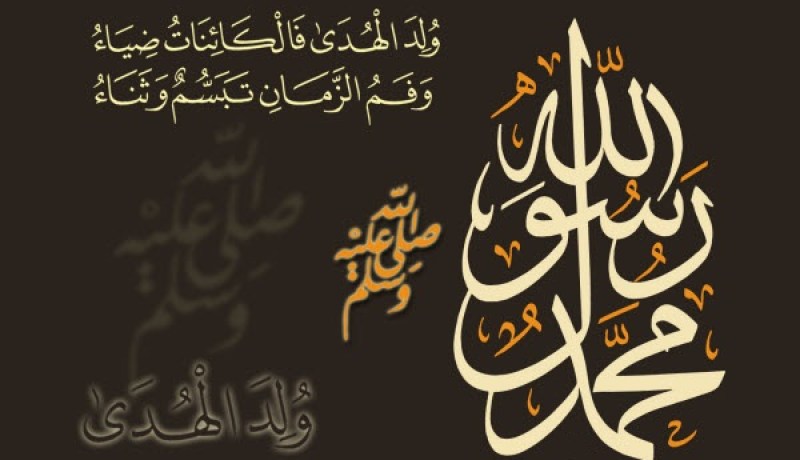 وُلِدَ الْهُدَىٰ فَالْكَائِنَاتُ ضِيَاءُ
وَفَمُ الزَّمَانِ تَبَسُّمٌ وَثَنَاءُ
محمد رسول الله
صلى الله عليه وسلم
صلى الله عليه وسلم
وُلِدَ الْهُدَىٰ